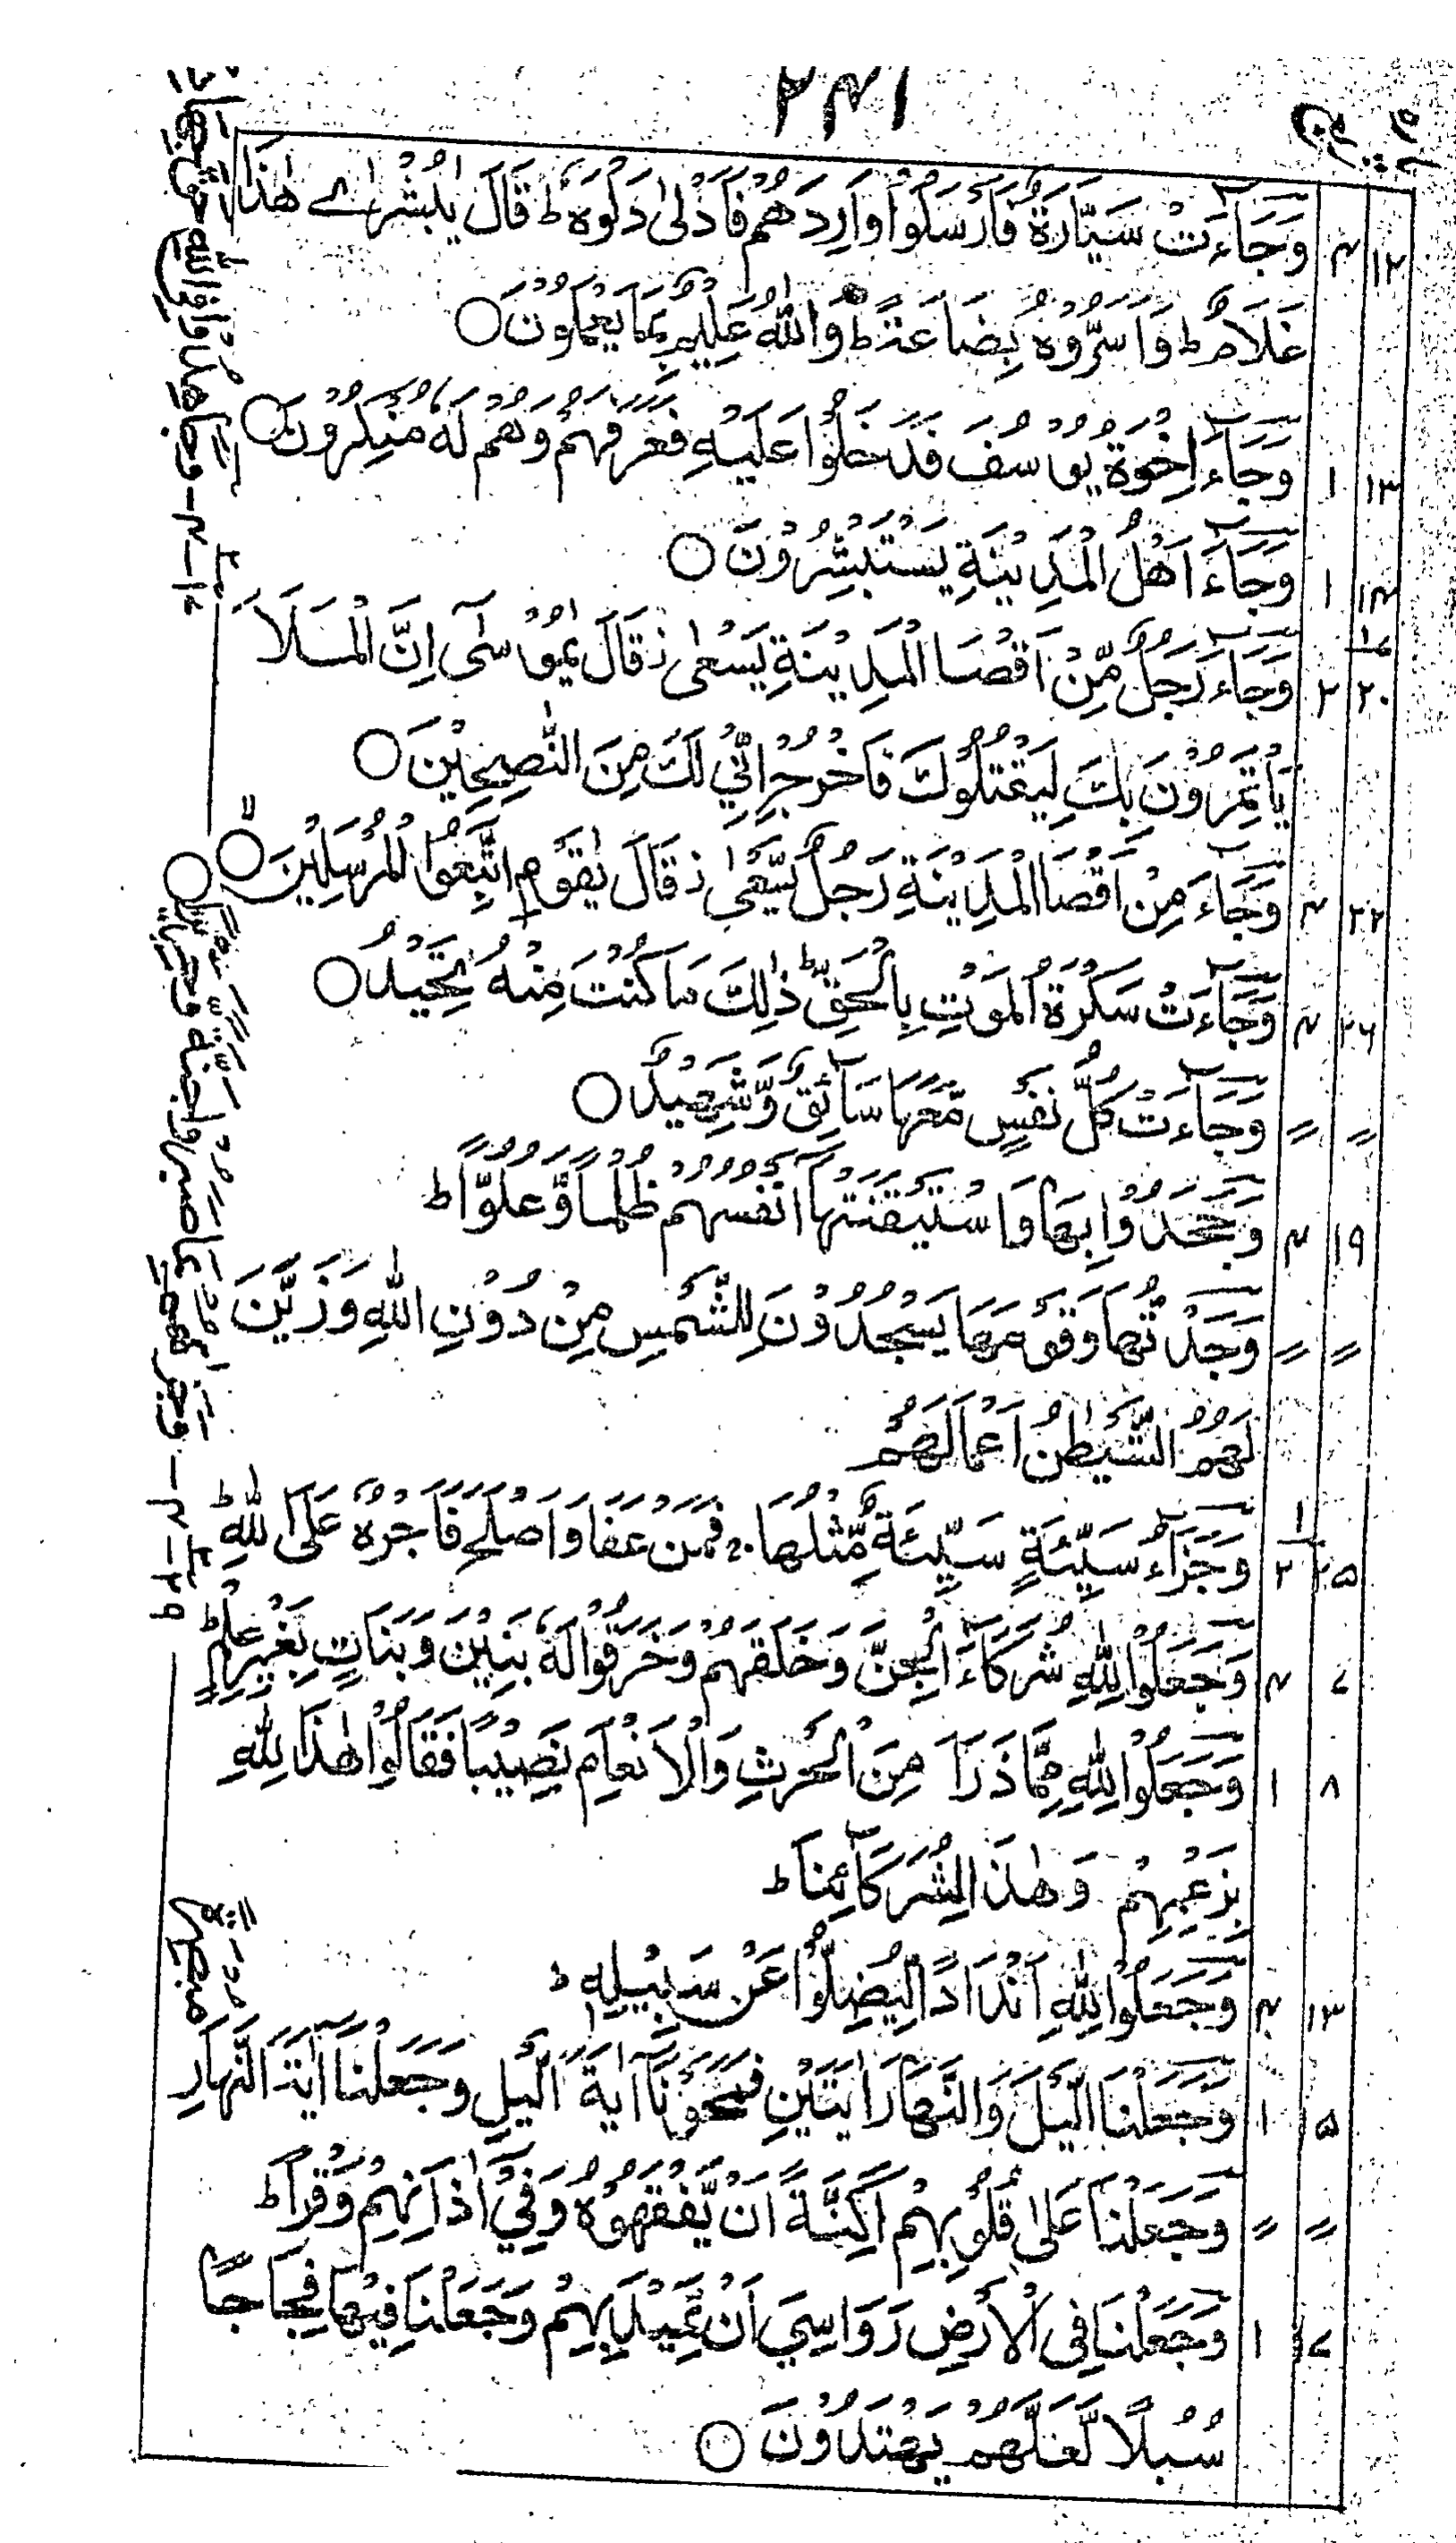 ۲۴۱
پارہ
وَجَآءَتْ سَيَّارَةٌ فَاَرْسَلُوْا وَارِدَهُمْ فَاَدْلٰى دَلْوَهٗ ط قَالَ يٰبُشْرٰے هٰذَا ۴ ۱۲
غُلَامٌ ط وَاَسَرُّوْهُ بِضَاعَةً ط وَاللّٰهُ عَلِيْمٌۢ بِمَا يَعْمَلُوْنَ ○
وَجَآءَ اِخْوَةُ يُوْسُفَ فَدَخَلُوْا عَلَيْهِ فَعَرَفَهُمْ وَهُمْ لَهٗ مُنْكِرُوْنَ ○ ۱ ۱۳
وَجَآءَ اَهْلُ الْمَدِيْنَةِ يَسْتَبْشِرُوْنَ ○ ۱ ۱۴
وَجَآءَ رَجُلٌ مِّنْ اَقْصَا الْمَدِيْنَةِ يَسْعٰى ز قَالَ يٰمُوْسٰٓى اِنَّ الْمَلَاَ ۲ ۲۰
يَاْتَمِرُوْنَ بِكَ لِيَقْتُلُوْكَ فَاخْرُجْ اِنِّيْ لَكَ مِنَ النّٰصِحِيْنَ ○
وَجَآءَ مِنْ اَقْصَا الْمَدِيْنَةِ رَجُلٌ يَّسْعٰى ز قَالَ يٰقَوْمِ اتَّبِعُوا الْمُرْسَلِيْنَ ○ ۴ ۲۲
وَجَآءَتْ سَكْرَةُ الْمَوْتِ بِالْحَقِّ ط ذٰلِكَ مَا كُنْتَ مِنْهُ تَحِيْدُ ○ ۴ ۲۶
وَجَآءَتْ كُلُّ نَفْسٍ مَّعَهَا سَآئِقٌ وَّشَهِيْدٌ ○ ״ ״
وَجَحَدُوْا بِهَا وَاسْتَيْقَنَتْهَآ اَنْفُسُهُمْ ظُلْمًا وَّعُلُوًّا ط ۴ ۱۹
وَجَدْتُّهَا وَقَوْمَهَا يَسْجُدُوْنَ لِلشَّمْسِ مِنْ دُوْنِ اللّٰهِ وَزَيَّنَ ״ ״
لَهُمُ الشَّيْطٰنُ اَعْمَالَهُمْ
وَجَزَآءُ سَيِّئَةٍ سَيِّئَةٌ مِّثْلُهَا ج فَمَنْ عَفَا وَاَصْلَحَ فَاَجْرُهٗ عَلَى اللّٰهِ ط ۲ ۲۵
وَجَعَلُوْا لِلّٰهِ شُرَكَآءَ الْجِنَّ وَخَلَقَهُمْ وَخَرَقُوْا لَهٗ بَنِيْنَ وَبَنَاتٍۢ بِغَيْرِ عِلْمٍ ط ۴ ۷
وَجَعَلُوْا لِلّٰهِ مِمَّا ذَرَاَ مِنَ الْحَرْثِ وَالْاَنْعَامِ نَصِيْبًا فَقَالُوْا هٰذَا لِلّٰهِ ۱ ۸
بِزَعْمِهِمْ وَهٰذَا لِشُرَكَآئِنَا ط
وَجَعَلُوْا لِلّٰهِ اَنْدَادًا لِّيُضِلُّوْا عَنْ سَبِيْلِهٖ ط ۴ ۱۳
وَجَعَلْنَا الَّيْلَ وَالنَّهَارَ اٰيَتَيْنِ فَمَحَوْنَآ اٰيَةَ الَّيْلِ وَجَعَلْنَآ اٰيَةَ النَّهَارِ مُبْصِرَةً ۱ ۱۵
وَجَعَلْنَا عَلٰى قُلُوْبِهِمْ اَكِنَّةً اَنْ يَّفْقَهُوْهُ وَفِيْٓ اٰذَانِهِمْ وَقْرًا ط ״ ״
وَجَعَلْنَا فِى الْاَرْضِ رَوَاسِيَ اَنْ تَمِيْدَ بِهِمْ وَجَعَلْنَا فِيْهَا فِجَاجًا ۱ ۱۷
سُبُلًا لَّعَلَّهُمْ يَهْتَدُوْنَ ○
وَجَاهِدُوْا فِى اللّٰهِ حَقَّ جِهَادِهٖ ط
وَجَزٰىهُمْ بِمَا صَبَرُوْا جَنَّةً وَّحَرِيْرًا ○